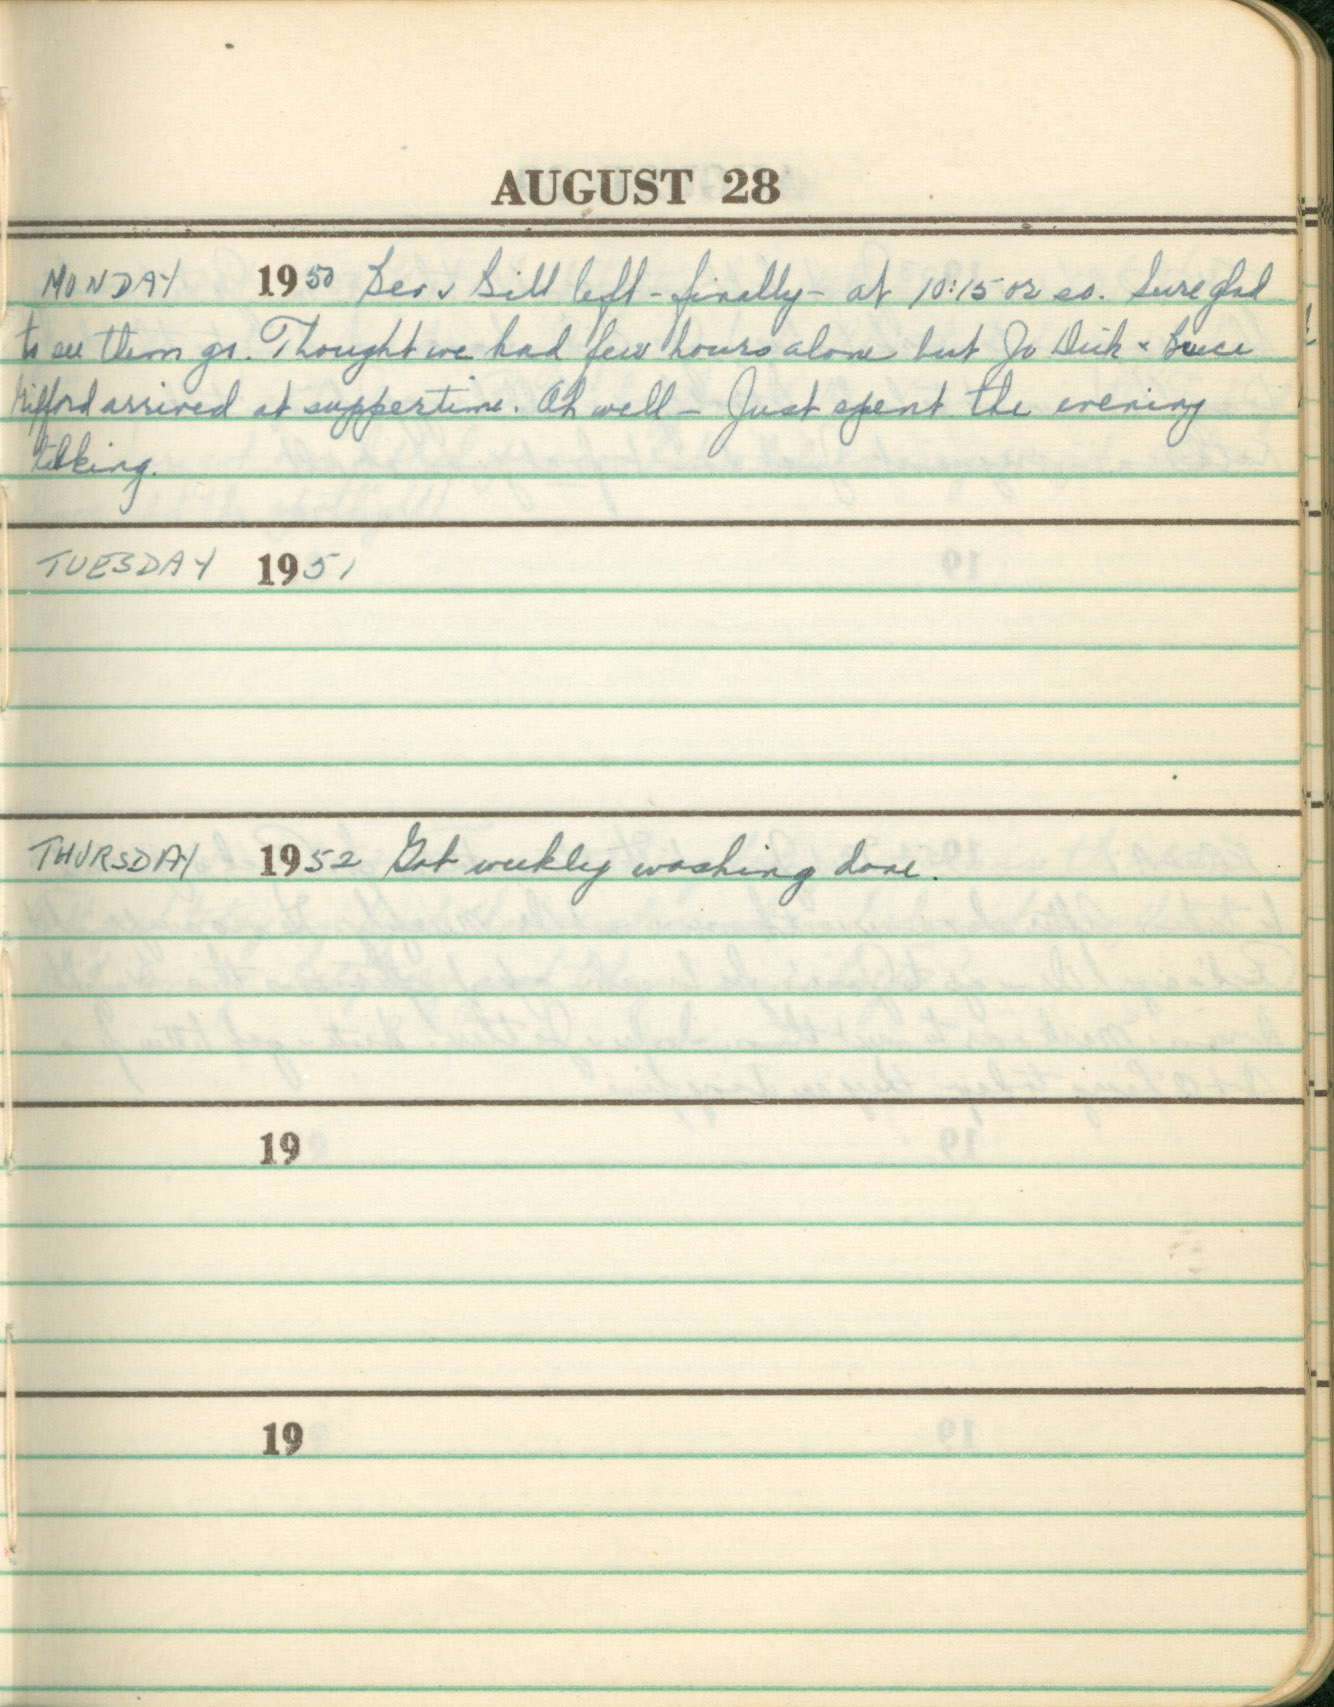 AUGUST 28
MONDAY 1950 Bev & Bill left - finally - at 10:15 or so. Sure glad
to see them go. Thought we had few hours alone but Jo Dick & Bruce
Gifford arrived at suppertime. Ah well - Just spent the evening
talking.
TUESDAY 1951
THURSDAY 1952 Got weekly washing done.
19
19